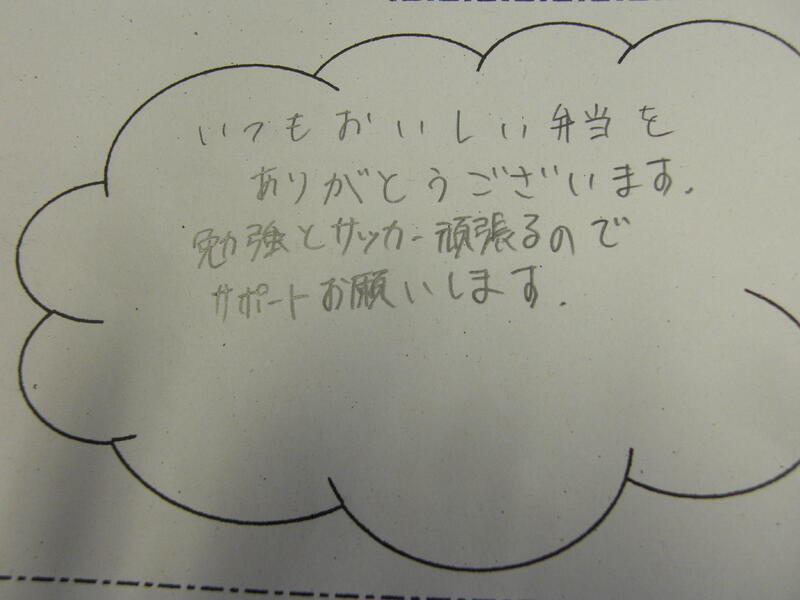 いつもおいしい弁当を
ありがとうございます.
勉強とサッカー頑張るので
サポートお願いします.